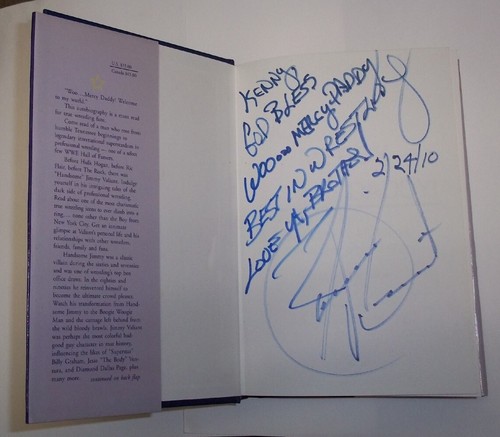 U.S. $35.00
Canada $45.00
"Woo... Mercy Daddy! Welcome
to my world."
This autobiography is a must read
for true wrestling fans.
Comes read of a man who rose from
humble Tennessee beginnings to
legendary international superstardom in
professional wrestling — one of a select
few WWE Hall of Famers.
Before Hulk Hogan, before Ric
Flair, before The Rock, there was
"Handsome" Jimmy Valiant. Indulge
yourself in his intriguing tales of the
dark side of professional wrestling.
Read about one of the most charismatic
true wrestling icons to ever climb into a
ring... none other than the Boy from
New York City. Get an intimate
glimpse at Valiant's personal life and his
relationships with other wrestlers,
friends, family and fans.
Handsome Jimmy was a classic
villain during the sixties and seventies
and was one of wrestling's top box
office draws. In the eighties and
nineties he reinvented himself to
become the ultimate crowd pleaser.
Watch his transformation from Hand-
some Jimmy to the Boogie Woogie
Man and the carnage left behind from
the wild bloody brawls. Jimmy Valiant
was perhaps the most colorful bad-
good guy alternate in mat history,
influencing the likes of "Superstar"
Billy Graham, Jesse "The Body" Ven-
tura, and Diamond Dallas Page, plus
many more.
continued on back flap
KENNY,
GOD BLESS
WOOOOO MERCY DADDY
BEST IN WRESTLING
LOVE YA BROTHER
2/24/10